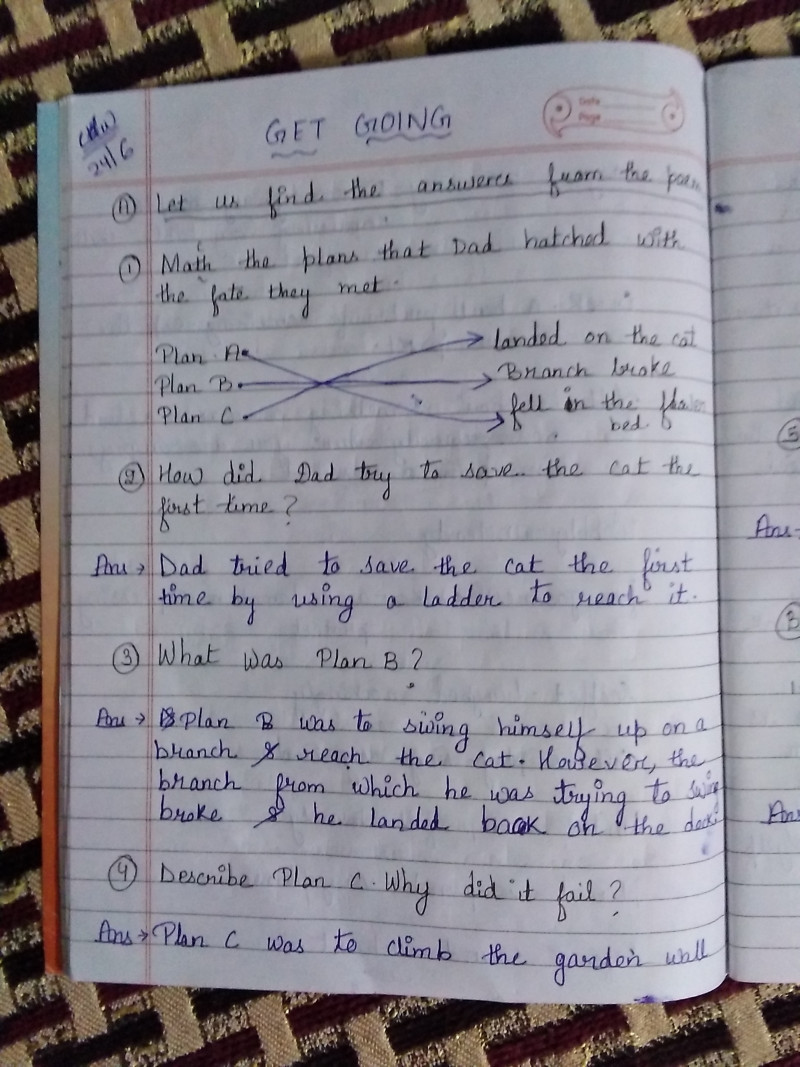 24/6
GET GOING
Date
Page
(A) Let us find the answeres fuam the poem
(1) Math the plans that Dad hatched with
the fate they met.
Plan A landed on the cat
Plan B Branch broke
Plan C fell in the flower
bed.
(2) How did Dad try to save the cat the
first time?
Ans → Dad tried to save the cat the first
time by using a ladder to reach it.
(3) What was Plan B?
Ans → Plan B was to swing himself up on a
branch & reach the cat. However, the
branch from which he was trying to swing
broke & he landed back on the deck.
(4) Describe Plan C. Why did it fail?
Ans → Plan C was to climb the garden wall
(5)
Ans →
Ans